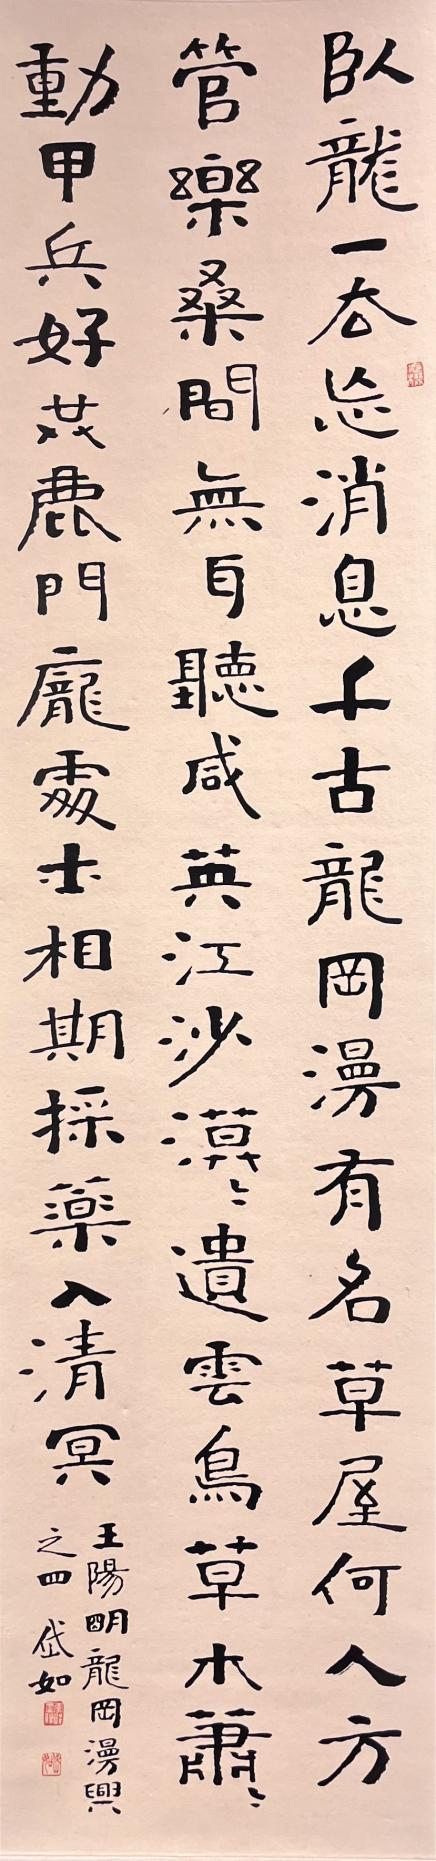 臥龍一去忘消息千古龍岡漫有名草屋何人方
管樂桑間無耳聽咸英江沙漠〻遺雲鳥草木蕭〻
動甲兵好共鹿門龐處士相期採藥入清冥
王陽明龍岡漫興
之四 岱如